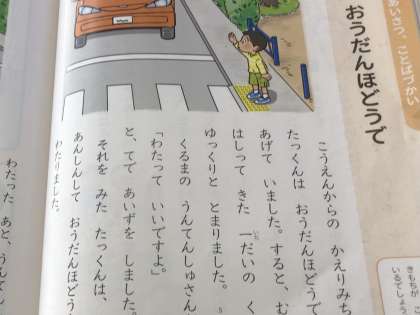 あいさつ、ことばづかい
おうだんほどうで
こうえんからの かえりみち
たっくんは おうだんほどうで
あげて いました。すると、む
はしって きた 一だいの く
いち
ゆっくりと とまりました。
くるまの うんてんしゅさん
「わたって いいですよ」
と、てで あいずを しました。
それを みた たっくんは、
あんしんして おうだんほどう
わたりました。
わたった あと、うんてん
きもちが
いるでしょ